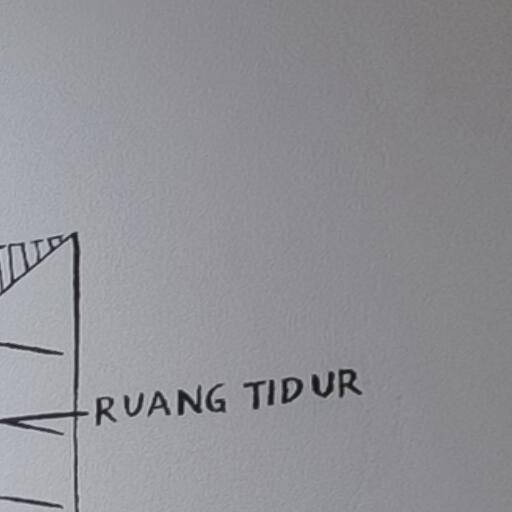 RUANG TIDUR